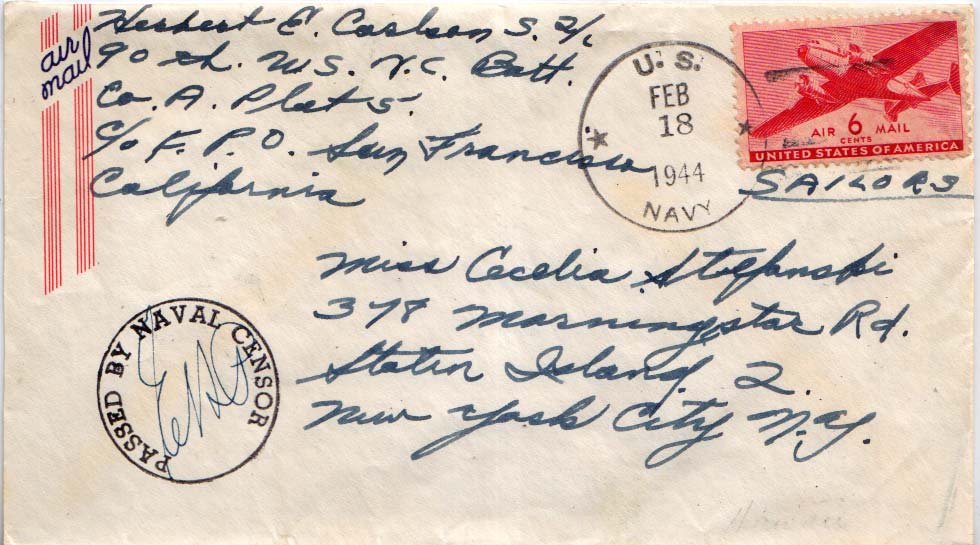 air
mail
Herbert E. Carlson S. 2/c
90 th. U.S. N.C. Batt.
Co. A. Plat 5.
c/o F. P. O. San Francisco
California
U. S.
FEB
18
1944
NAVY
AIR 6 MAIL
CENTS
UNITED STATES OF AMERICA
SAILORS
Miss Cecelia Stefanski
378 Morningstar Rd.
Staten Island 2.
New York City N.Y.
PASSED BY NAVAL CENSOR